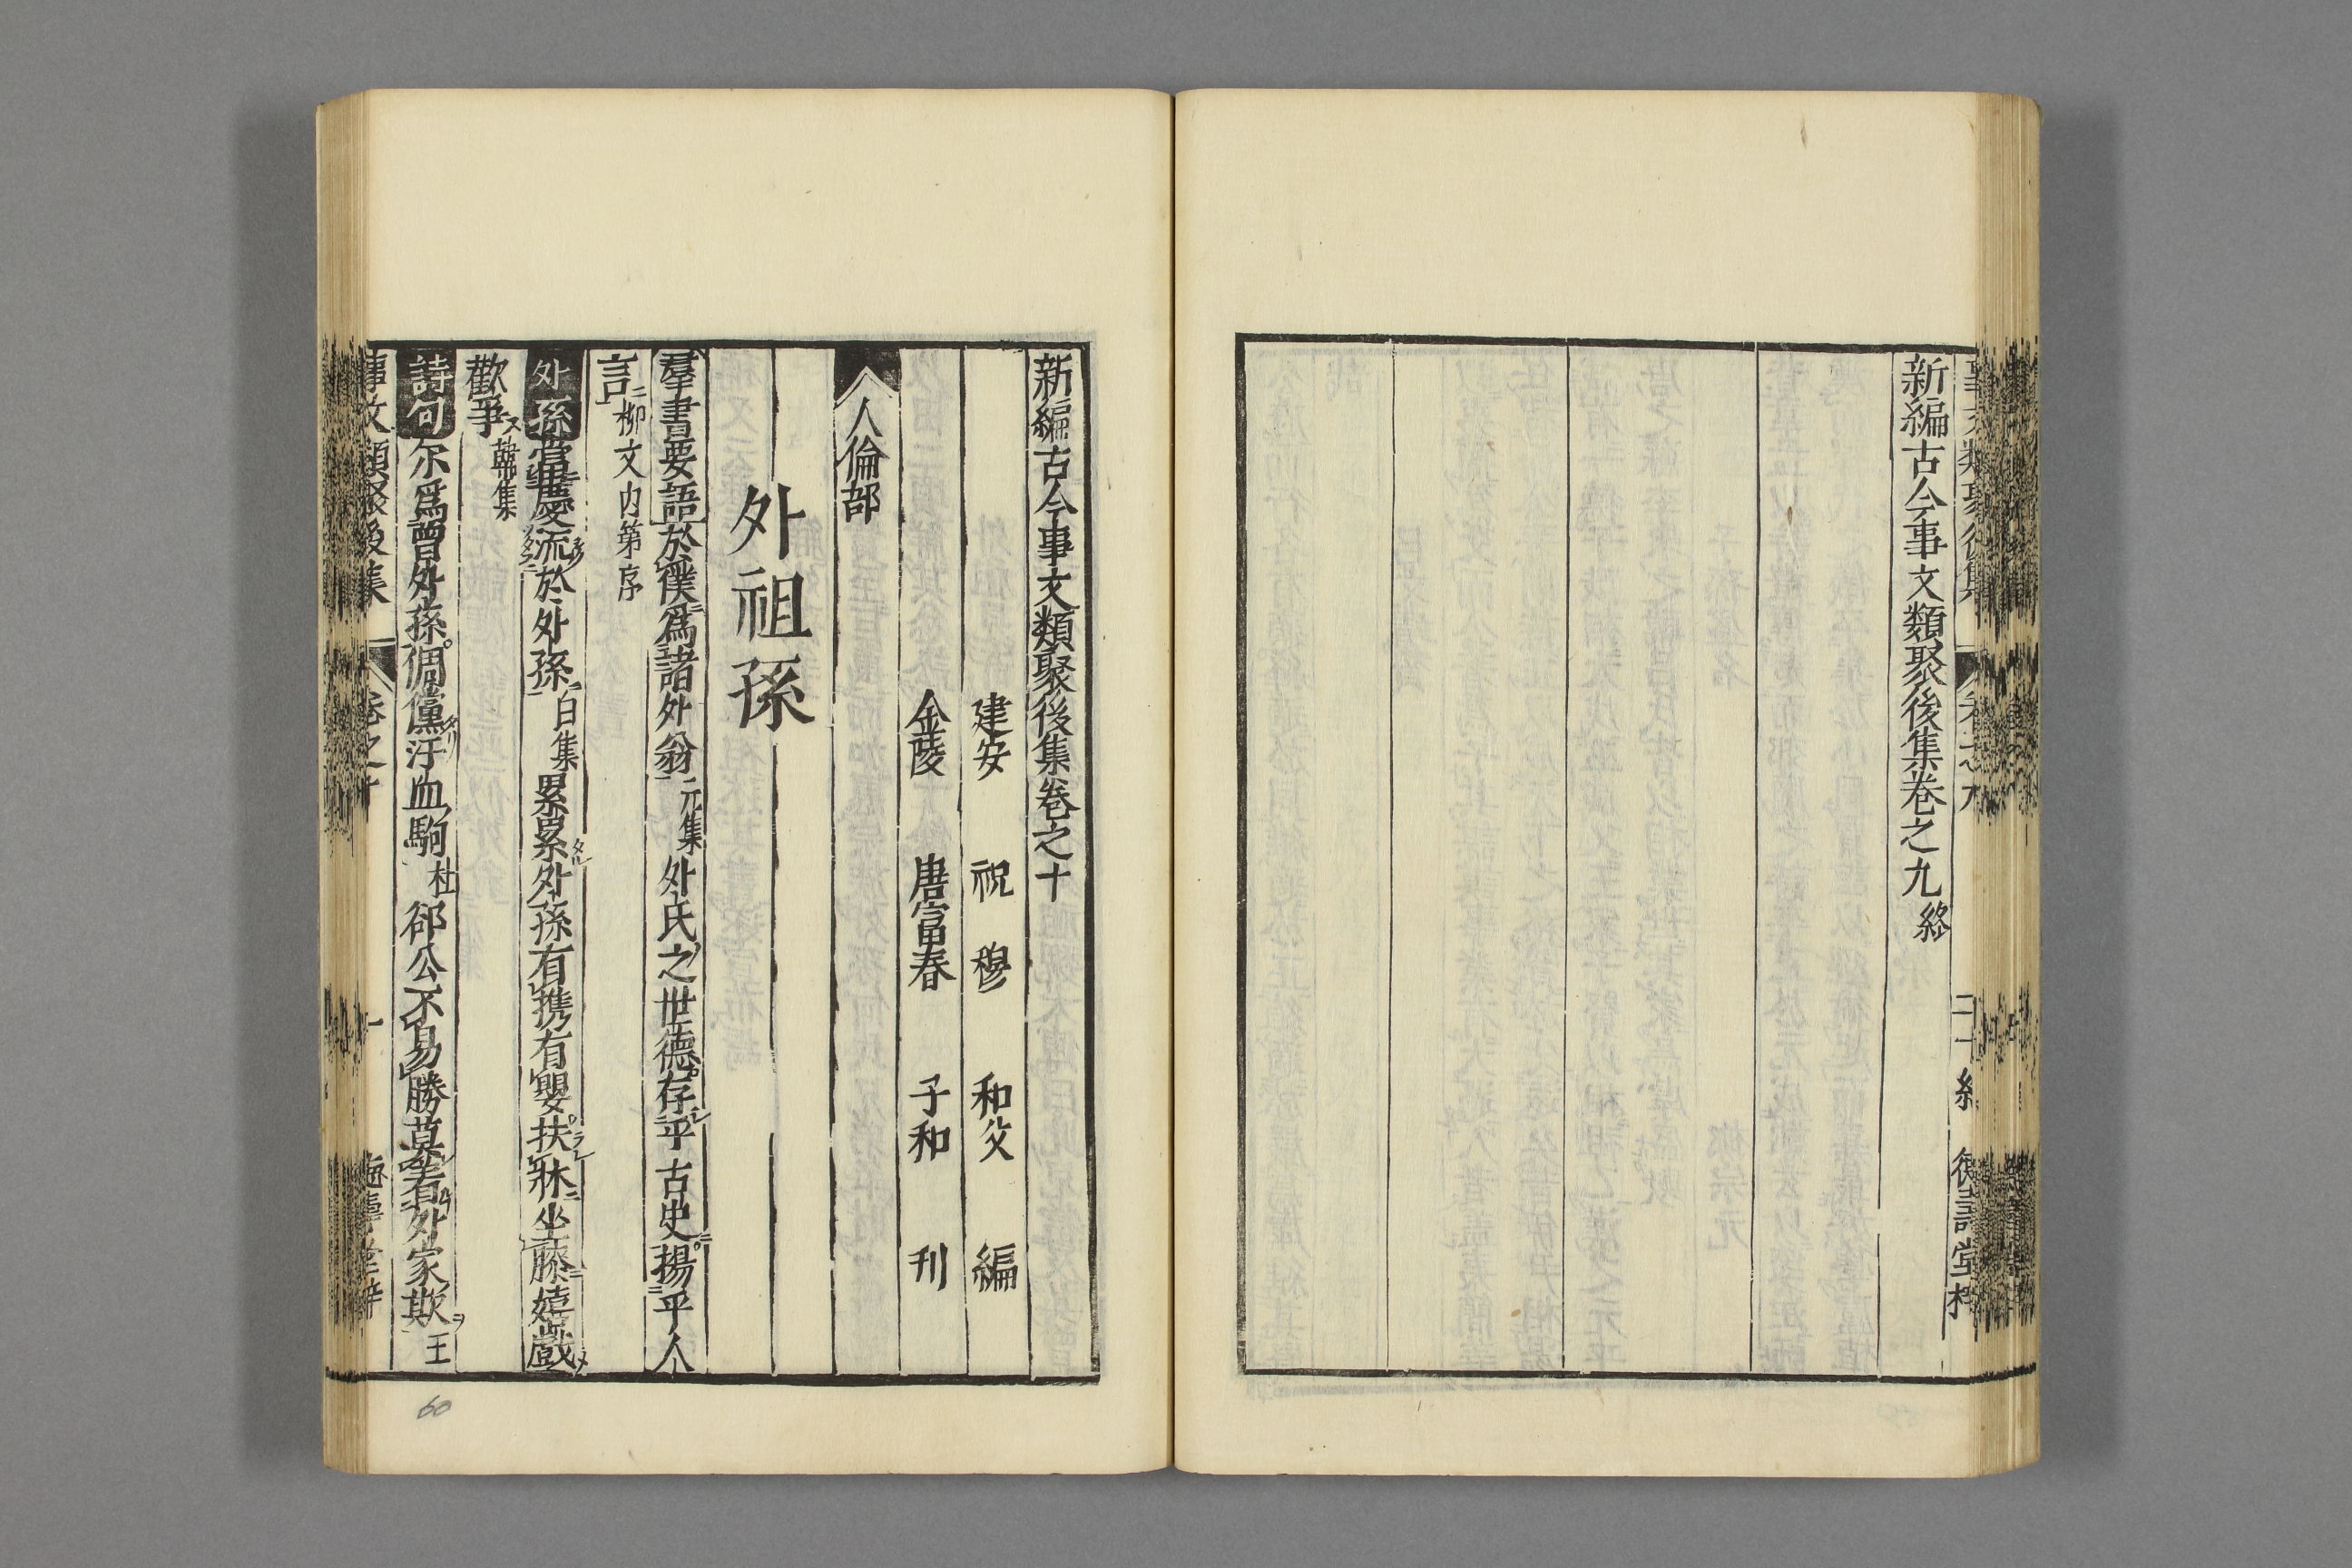 新編古今事文類聚後集卷之九 終
新編古今事文類聚後集卷之十
建安 祝 穆 和父 編
金陵 唐富春 子和 刊
人倫部
外祖孫
羣書要語於僕爲諸外翁元集外氏之世德存乎古史揚乎人
言柳文内弟序
外孫當慶流於外孫白集累累外孫有携有嬰扶牀坐膝嬉戲
歡爭韓集
詩句尔爲曾外孫倜儻汗血駒杜郤公不易勝莫著外家欺王
事文類聚後集 卷之十 一
60